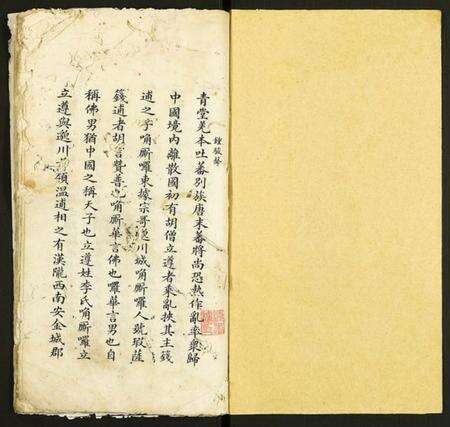 鍾駿聲
青堂羌本吐蕃別族唐末蕃將尚恐熱作亂率衆歸
中國境內離散國初有胡僧立遵者乘亂挾其主籛
逋之子唃厮囉東據宗哥邈川城唃厮囉人號瑕薩
籛逋者胡言贊普也唃厮華言佛也囉華言男也自
稱佛男猶中國之稱天子也立遵姓李氏唃厮囉立
立遵與邈川領溫逋相之有漢隴西南安金城郡